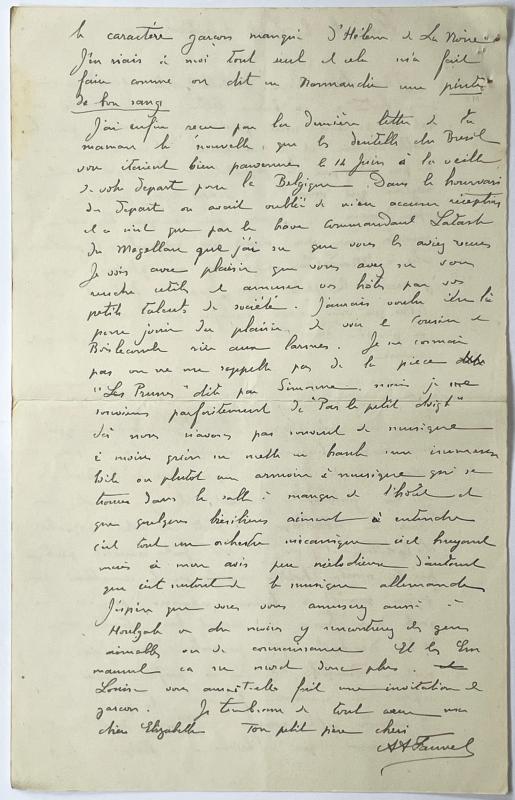 le caractère garçon manqué d'Hélène de La Noüe
J'en riais à moi tout seul et cela m'a fait
faire comme on dit en Normandie une pinte
de bon sang
J'ai enfin reçu par la dernière lettre de ta
maman la nouvelle que les dentelles du Brésil
vous étaient bien parvenues le 14 Juin à la veille
de votre départ pour la Belgique. Dans le hourvari
du départ on avait oublié de m'en accuser réception
et ce n'est que par le brave Commandant
du Magellan que j'ai su que vous les aviez reçues
Je vois avec plaisir que vous avez su vous
rendre utiles et amuser vos hôtes par vos
petits talents de société. J'aurais voulu être là
pour jouir du plaisir de voir le Cousin de
rire aux larmes. Je ne connais
pas ou ne me rappelle pas de la pièce
"Les Prunes" dite par Simonne, mais je me
souviens parfaitement de "Par le petit doigt"
Ici nous n'avons pas souvent de musique
à moins qu'on ne mette en branle une immense
boîte ou plutôt une armoire à musique qui se
trouve dans la salle à manger de l'hôtel et
que quelques brésiliens aiment à entendre
c'est tout un orchestre mécanique c'est bruyant
mais à mon avis peu mélodieux d'autant
que c'est surtout de la musique allemande
J'espère que vous vous amuserez aussi à
Houlgate ou du moins y rencontrerez des gens
aimables ou de connaissance. Et les Em
manuel ça ne mord donc plus.
Louise vous aurait-elle fait une invitation de
garçon. Je t'embrasse de tout coeur ma
chère Elizabeth Ton petit père chéri
AA Fauvel